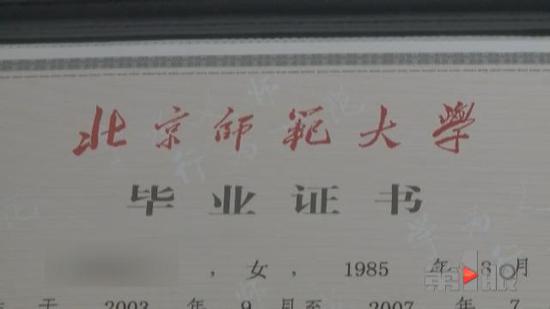 北京师範大学
毕业证书
，女，1985 年 8 月
于 2003 年 9 月至 2007 年 7